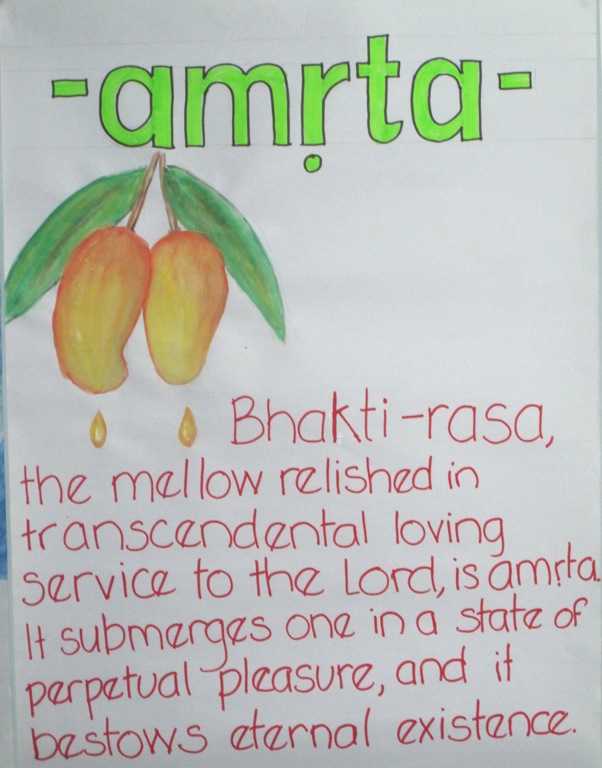 -amṛta-
Bhakti-rasa,
the mellow relished in
transcendental loving
service to the Lord, is amṛta.
It submerges one in a state of
perpetual pleasure, and it
bestows eternal existence.